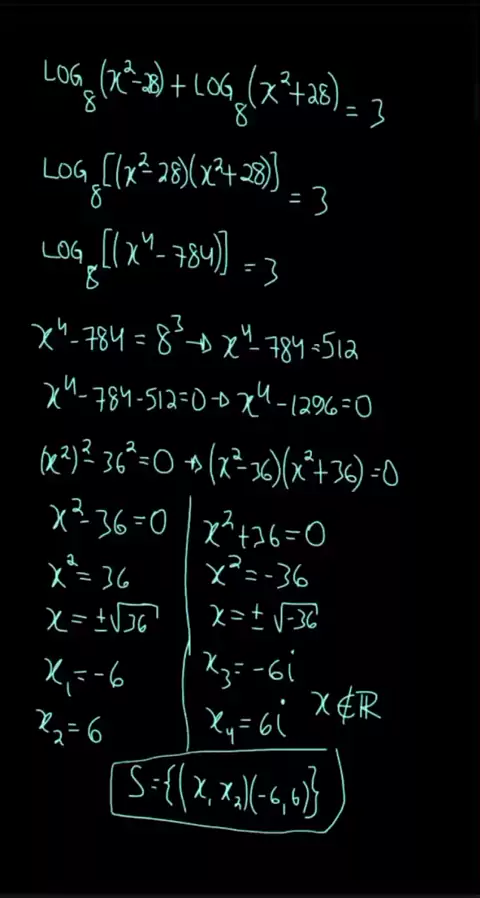 LOG₈(x²-28)+LOG₈(x²+28)=3
LOG₈[(x²-28)(x²+28)]=3
LOG₈[(x⁴-784)]=3
x⁴-784=8³→x⁴-784=512
x⁴-784-512=0→x⁴-1296=0
(x²)²-36²=0→(x²-36)(x²+36)=0
x²-36=0
x²=36
x=±√36
x₁=-6
x₂=6
x²+36=0
x²=-36
x=±√-36
x₃=-6i
x₄=6i x∉ℝ
S={(x, x₂)(-6,6)}